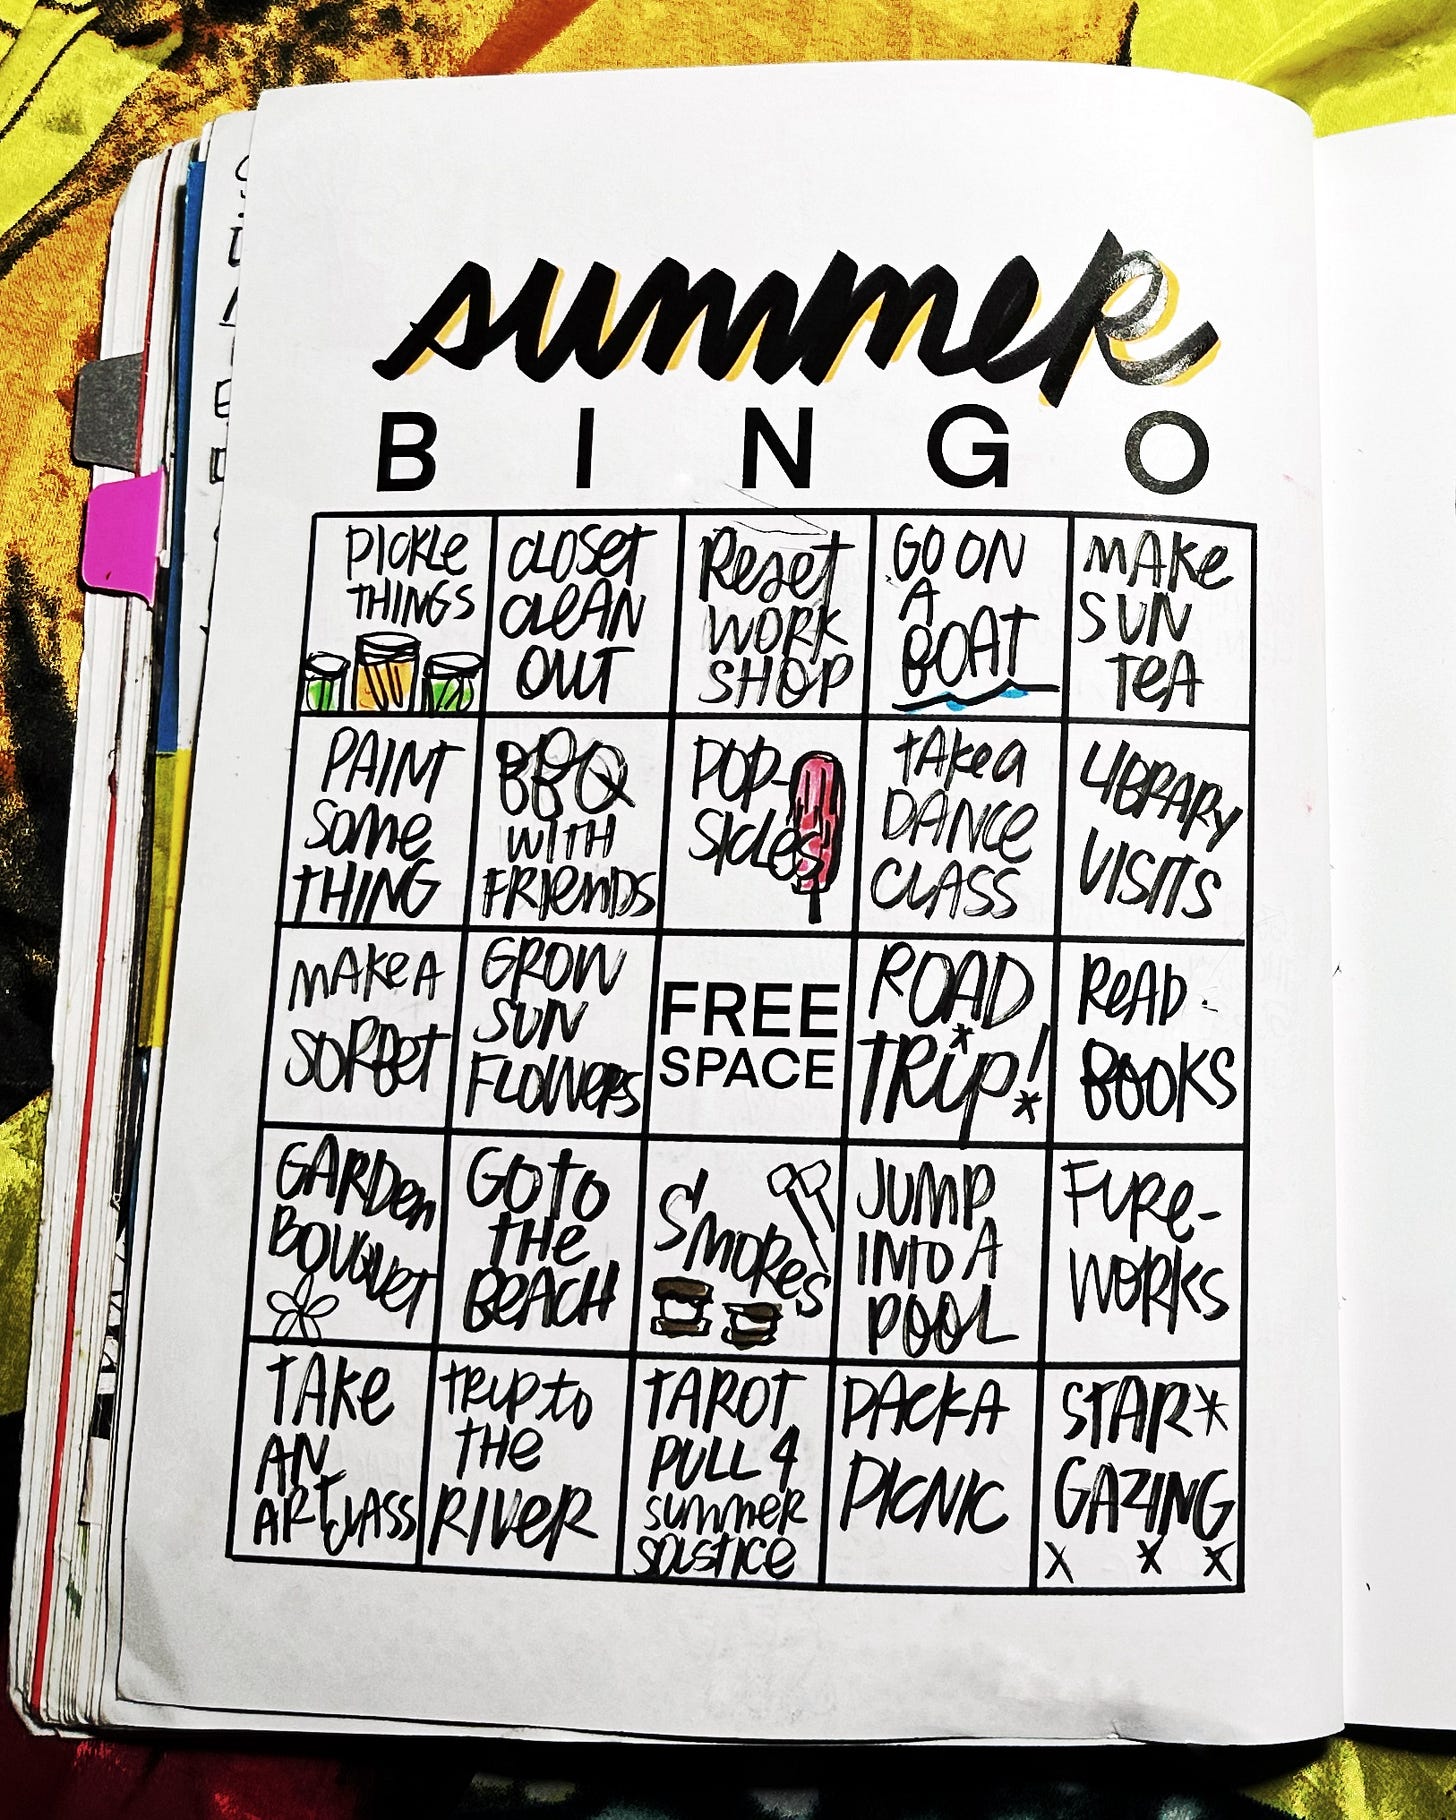 summer
B I N G O
PICKLE
THINGS
CLOSET
CLEAN
OUT
Reset
WORK
SHOP
GO ON
A
BOAT
MAKE
SUN
TEA
PAINT
SOME
THING
BBQ
WITH
FRIENDS
POP-
SICLES
TAKE A
DANCE
CLASS
LIBRARY
VISITS
MAKE A
SORBET
GROW
SUN
FLOWERS
FREE
SPACE
ROAD
TRIP!
READ
BOOKS
GARDEN
BOUQUET
GO TO
THE
BEACH
S'MORES
JUMP
INTO A
POOL
FIRE-
WORKS
TAKE
AN
ART CLASS
TRIP to
THE
RIVER
TAROT
PULL 4
SUMMER
SOLSTICE
PACK A
PICNIC
STAR*
GAZING